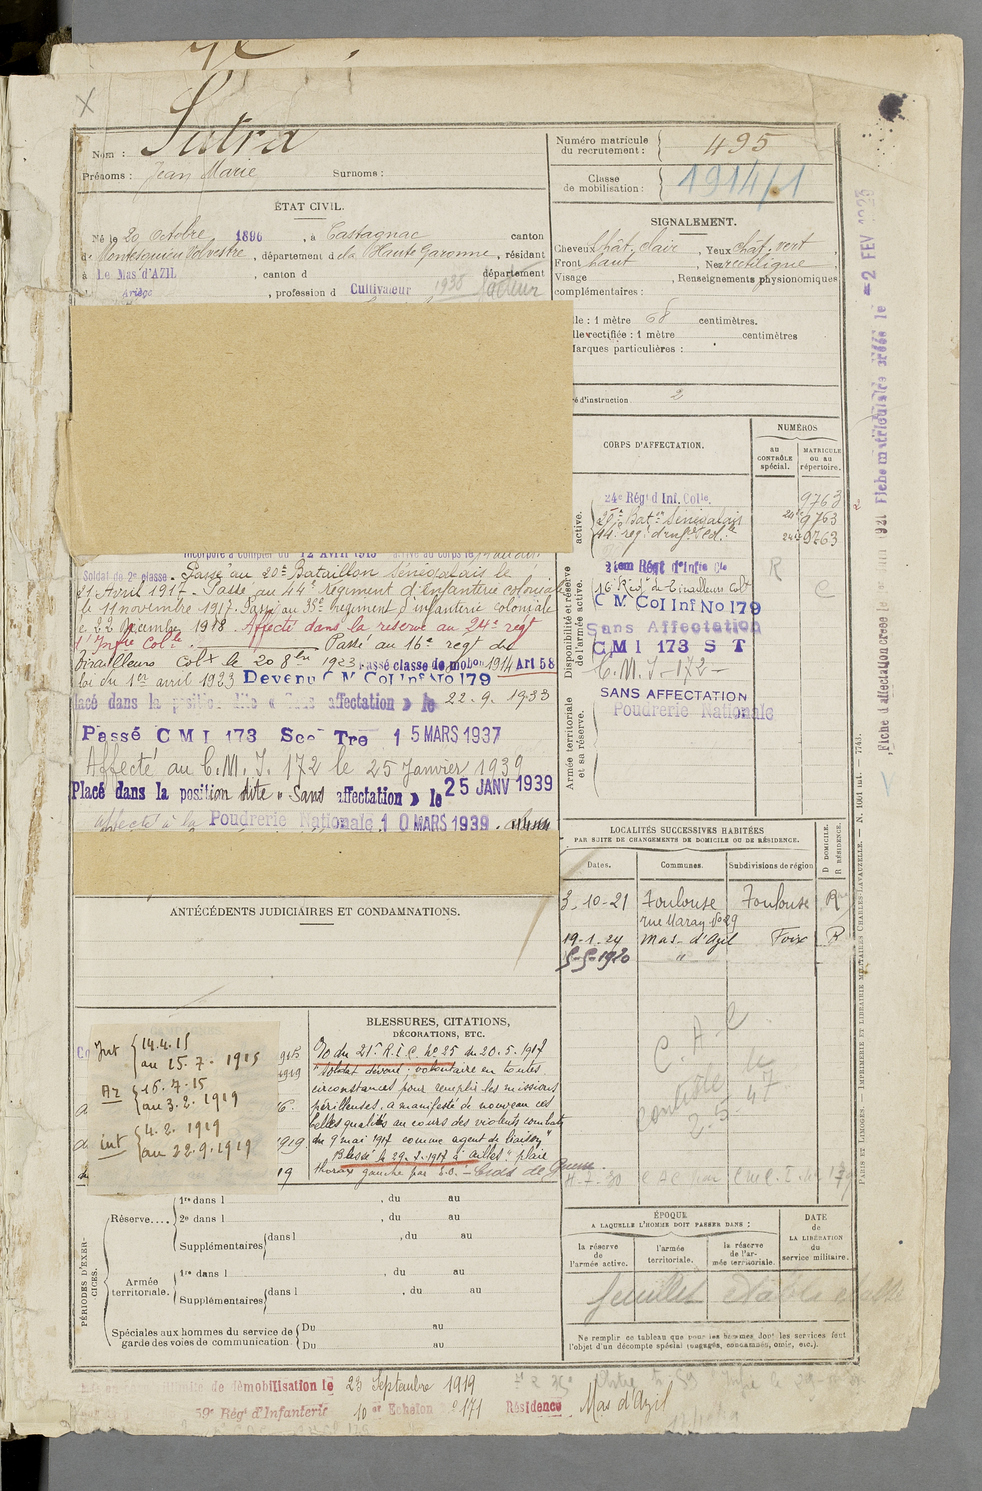 Nom : Sutra
Prénoms : Jean Marie Surnoms :
Numéro matricule du recrutement : 495
Classe de mobilisation : 1914/1
ÉTAT CIVIL.
Né le 20 octobre 1896, à Castagnac canton
de Montesquieu Volvestre, département de la Haute Garonne, résidant
à Le Mas d'AZIL, canton d département
d Ariège, profession d Cultivateur 1938 facteur
SIGNALEMENT.
Cheveux chât. clair, Yeux chât. vert
Front haut, Nez rectiligne
Visage , Renseignements physionomiques
complémentaires :
lle : 1 mètre 68 centimètres.
lle rectifiée : 1 mètre centimètres
Marques particulières :
ré d'instruction. 2
Incorporé à compter du 12 Avril 1915 arrivé au corps le
Soldat de 2e classe. Passé au 20e Bataillon Sénégalais le
21 Avril 1917. Passé au 44e régiment d'infanterie coloniale
le 11 novembre 1917. Passé au 38e régiment d'infanterie coloniale
le 22 Décembre 1918. Affecté dans la réserve au 24e regt
d'Inftie Colle. Passé au 16e regt de
Tirailleurs Colx le 20 8bre 1923 Passé classe de mobon 1914 Art 58
loi du 1er avril 1923 Devenu C M Col Inf No 179
lacé dans la position dite « Sans affectation » le 22.9.1933
Passé C M I 173 Secon Tre 15 MARS 1937
Affecté au C.M.I. 172 le 25 Janvier 1939
Placé dans la position dite « Sans affectation » le 25 JANV 1939
affecté à la Poudrerie Nationale 10 MARS 1939
CORPS D'AFFECTATION.
NUMÉROS
au CONTRÔLE spécial.
MATRICULE ou au répertoire.
active.
24e Régt d Inf. Colle. 9763
20e Batn Sénégalais 9763
44e reg. d'infie col.le 9763
Disponibilité et réserve de l'armée active.
21em Régt d'Infie Cle R
16e Régt de Tirailleurs Colx C
C M Col Inf No 179
Sans Affectation
C M I 173 S T
C.M.I-172-
SANS AFFECTATION
Poudrerie Nationale
Armée territoriale et sa réserve.
LOCALITÉS SUCCESSIVES HABITÉES
PAR SUITE DE CHANGEMENTS DE DOMICILE OU DE RÉSIDENCE.
D DOMICILE. R RÉSIDENCE.
Dates. Communes. Subdivisions de région
3-10-21 Toulouse Toulouse R
19-1-24 Mas-d'Azil Foix R
C.A.C
contrôle le
2.5 47
ANTÉCÉDENTS JUDICIAIRES ET CONDAMNATIONS.
Int { 14.4.15
au 15.7.1915
Az { 16.7.15
au 3.2.1919
int { 4.2.1919
au 22.9.1919
BLESSURES, CITATIONS,
DÉCORATIONS, ETC.
O du 21e R.I.C. No 25 du 20.5.1917
"Soldat dévoué ; volontaire en toutes
circonstances pour remplir les missions
périlleuses, a manifesté de nouveau ces
belles qualités au cours des violents combats
du 9 mai 1917 comme agent de liaison"
Blessé le 29.7.1917 à Ailles" plaie
thorax gauche par E.O. - Croix de Guerre
PÉRIODES D'EXERCICES.
Réserve.... 1re dans l , du au
2e dans l , du au
Supplémentaires dans l , du au
Armée territoriale. 1re dans l , du au
Supplémentaires dans l , du au
Spéciales aux hommes du service de garde des voies de communication. Du au
Du au
ÉPOQUE
A LAQUELLE L'HOMME DOIT PASSER DANS :
la réserve de l'armée active.
l'armée territoriale.
la réserve de l'armée territoriale.
DATE de LA LIBÉRATION du service militaire.
feuillet
Ne remplir ce tableau que pour les hommes dont les services font
l'objet d'un décompte spécial (engagés, condamnés, omis, etc.).
de démobilisation le 23 Septembre 1919
59e Régt d'Infanterie 10e Echelon No 171 Résidence Mas d'Azil
Fiche matriculaire créée le 2 FEV 1923
Fiche d'affectation créée le
PARIS ET LIMOGES. — IMPRIMERIE ET LIBRAIRIE MILITAIRES CHARLES-LAVAUZELLE. — N. 1001 int. — 7743.